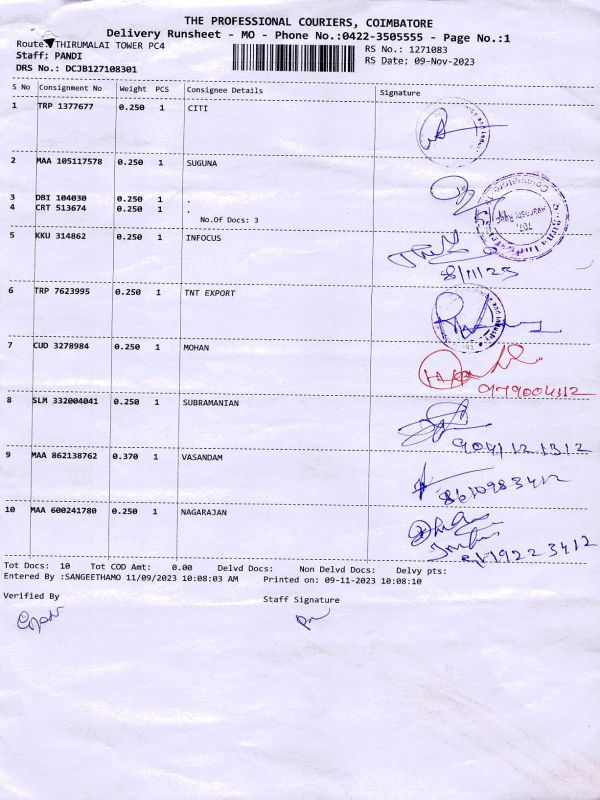 THE PROFESSIONAL COURIERS, COIMBATORE
Delivery Runsheet - MO - Phone No.:0422-3505555 - Page No.:1
Route: THIRUMALAI TOWER PC4 RS No.: 1271083
Staff; PANDI RS Date; 09-Nov-2023
DRS No.: DCJB127108301
S No Consignment No Weight PCS Consignee Details Signature
1 TRP 1377677 0.250 1 CITI
2 MAA 105117578 0.250 1 SUGUNA
3 DBI 104030 0.250 1 .
4 CRT 513674 0.250 1 .
No.Of Docs: 3
5 KKU 314862 0.250 1 INFOCUS
8/11/23
6 TRP 7623995 0.250 PCS TNT EXPORT
7 CUD 3278984 0.250 1 MOHAN
8 SLM 332004041 0.250 1 SUBRAMANIAN
9 MAA 862138762 0.370 1 VASANDAM
8610983412
10 MAA 600241780 0.250 1 NAGARAJAN
Tot Docs: 10 Tot COD Amt: 0.00 Delvd Docs: Non Delvd Docs: Delvy pts:
Entered By :SANGEETHAMO 11/09/2023 10:08:03 AM Printed on: 09-11-2023 10:08:10
Verified By Staff Signature